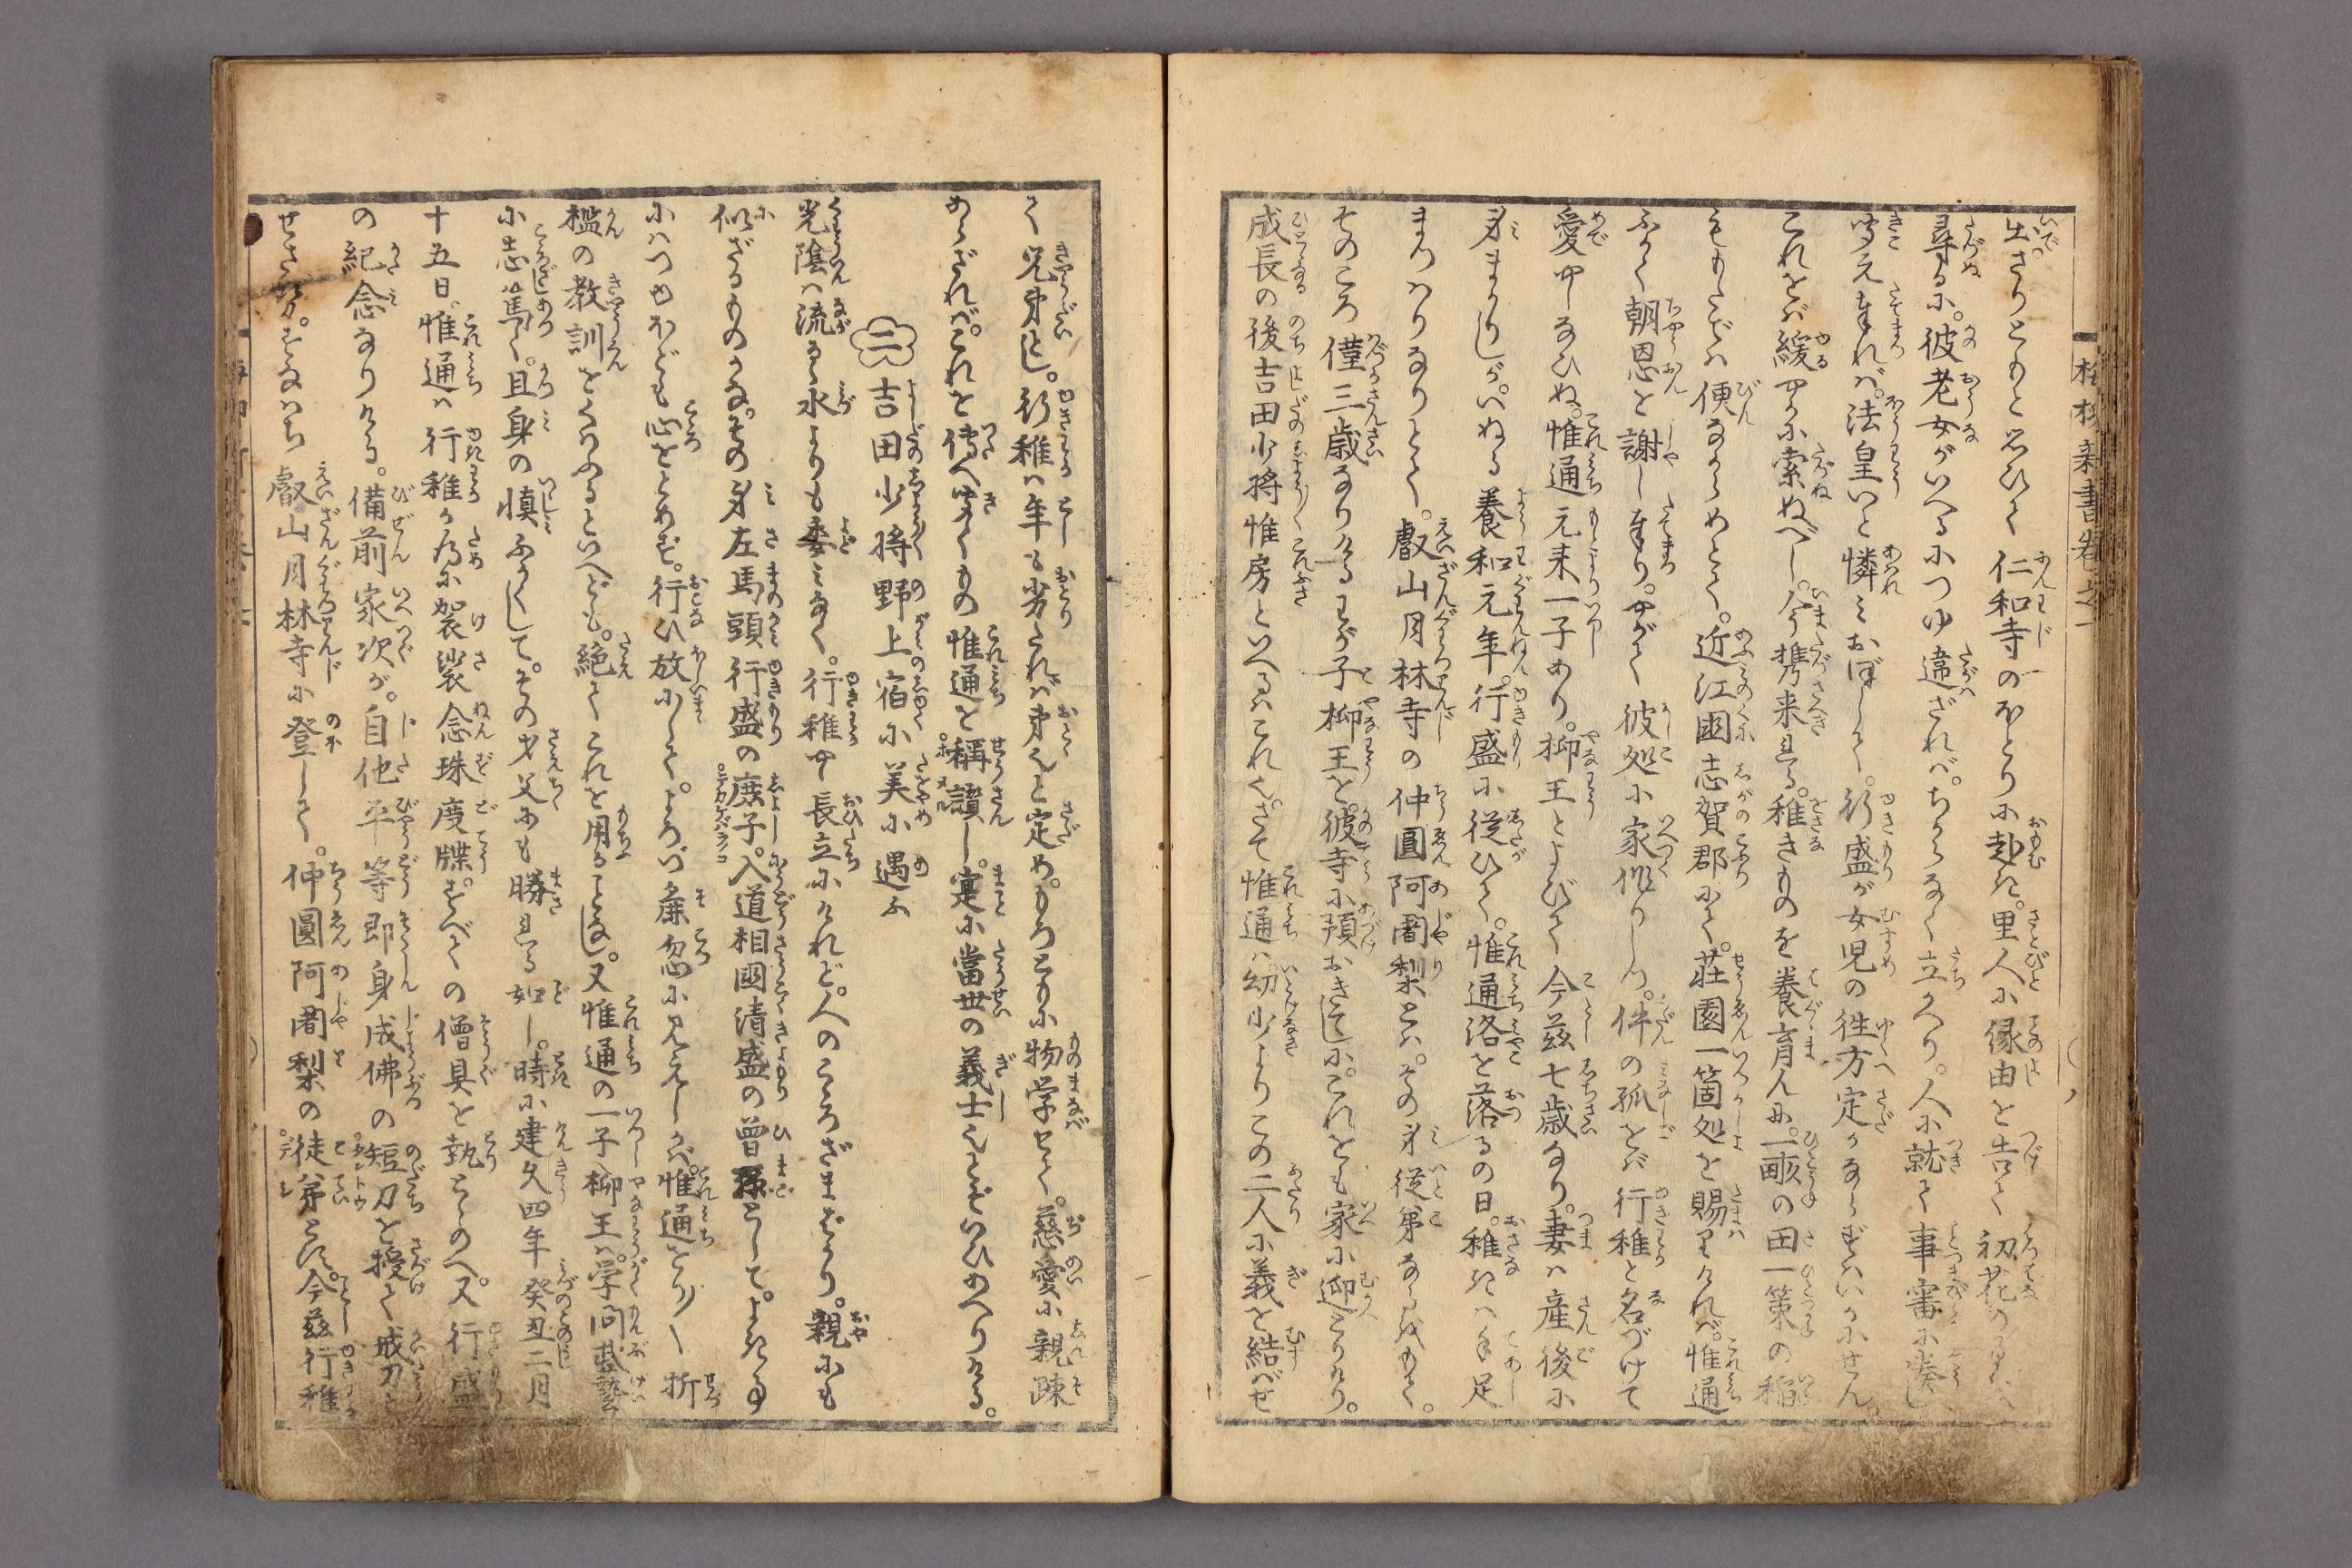 出さりともと思ひて仁和寺のほとりに赴き。里人に縁由を告て初花の
尋るに。彼老女がいへるにつゆ違ざれば。ちからなく立かへり。人に就て事審に奏し
聞え奉れば。法皇いと憐みおぼして。行盛が女児の往方定かならずはいかにせん。
これをば緩やかに索ぬべし。今携来れる。稚きものを養育んに。一畞の田一策の稲
をもたでは便なからめとて。近江國志賀郡にて。荘園一箇処を賜りければ。惟通
ふかく朝恩を謝し奉り。やがて彼処に家作りしつ。件の孤をば行稚と名づけて
愛やしなひぬ。惟通元来一子あり。柳王とよびて今茲七歳なり。妻は産後に
身まかりしが。いぬる養和元年。行盛に従ひて。惟通洛を落るの日。稚きは手足
まつはりなりとて。叡山月林寺の仲圓阿闍梨とは。その身従弟なるをもて。
そのころ僅三歳なりけるわが子柳王を。彼寺に預おきしに。これをも家に迎とりけり。
成長の後吉田少将惟房といへるはこれ也。さて惟通は幼少よりこの二人に義を結ばせ
て兄弟とし。行稚は年も劣たれば弟也と定め。もろともに物学せて。慈愛に親疎
あらざれば。これを傳へ聞くもの惟通を稱讃し。寔に當世の義士也とぞいひあへりける。
二 吉田少将野上宿に美小遇ふ
光陰は流るゝ水よりも委みなく。行稚やゝ長立にけれど。人のこゝろざまばかり。親にも
似ざるものかな。その身左馬頭行盛の庶子。入道相國清盛の曽孫として。よき事
にはつゆほども心をとめず。行ひ放にして。よろづ麁忽に見えしかば。惟通をり〳〵折
檻の教訓をくはふるといへども。絶てこれを用ることなし。又惟通の一子柳王は。学問武藝
に志篤く。且身の慎ふかくして。その才父にも勝れる如し。時に建久四年癸丑二月
十五日。惟通は行稚が為に袈裟念珠度牒。すべての僧具を執とゝのへ。又行盛
の紀念なりける。備前家次が。自他平等即身成佛の短刀を授て戒刀と
せさせ。すなはち叡山月林寺に登して。仲圓阿闍梨の徒弟とす。今茲行稚